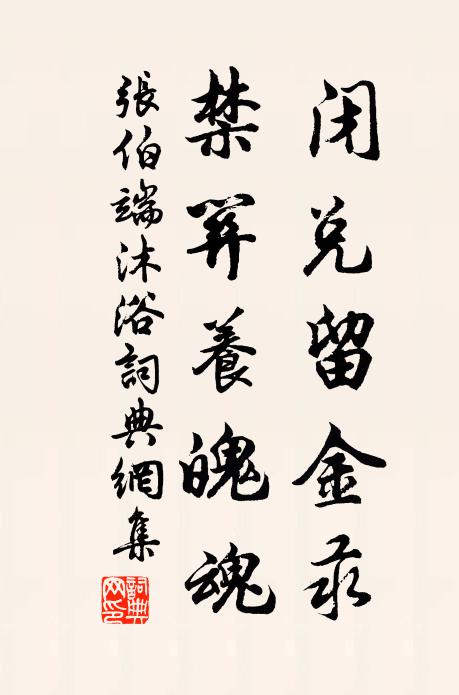 闭兑留金汞
禁關養魄魂
張伯端沐浴詞典網集
詞典網印